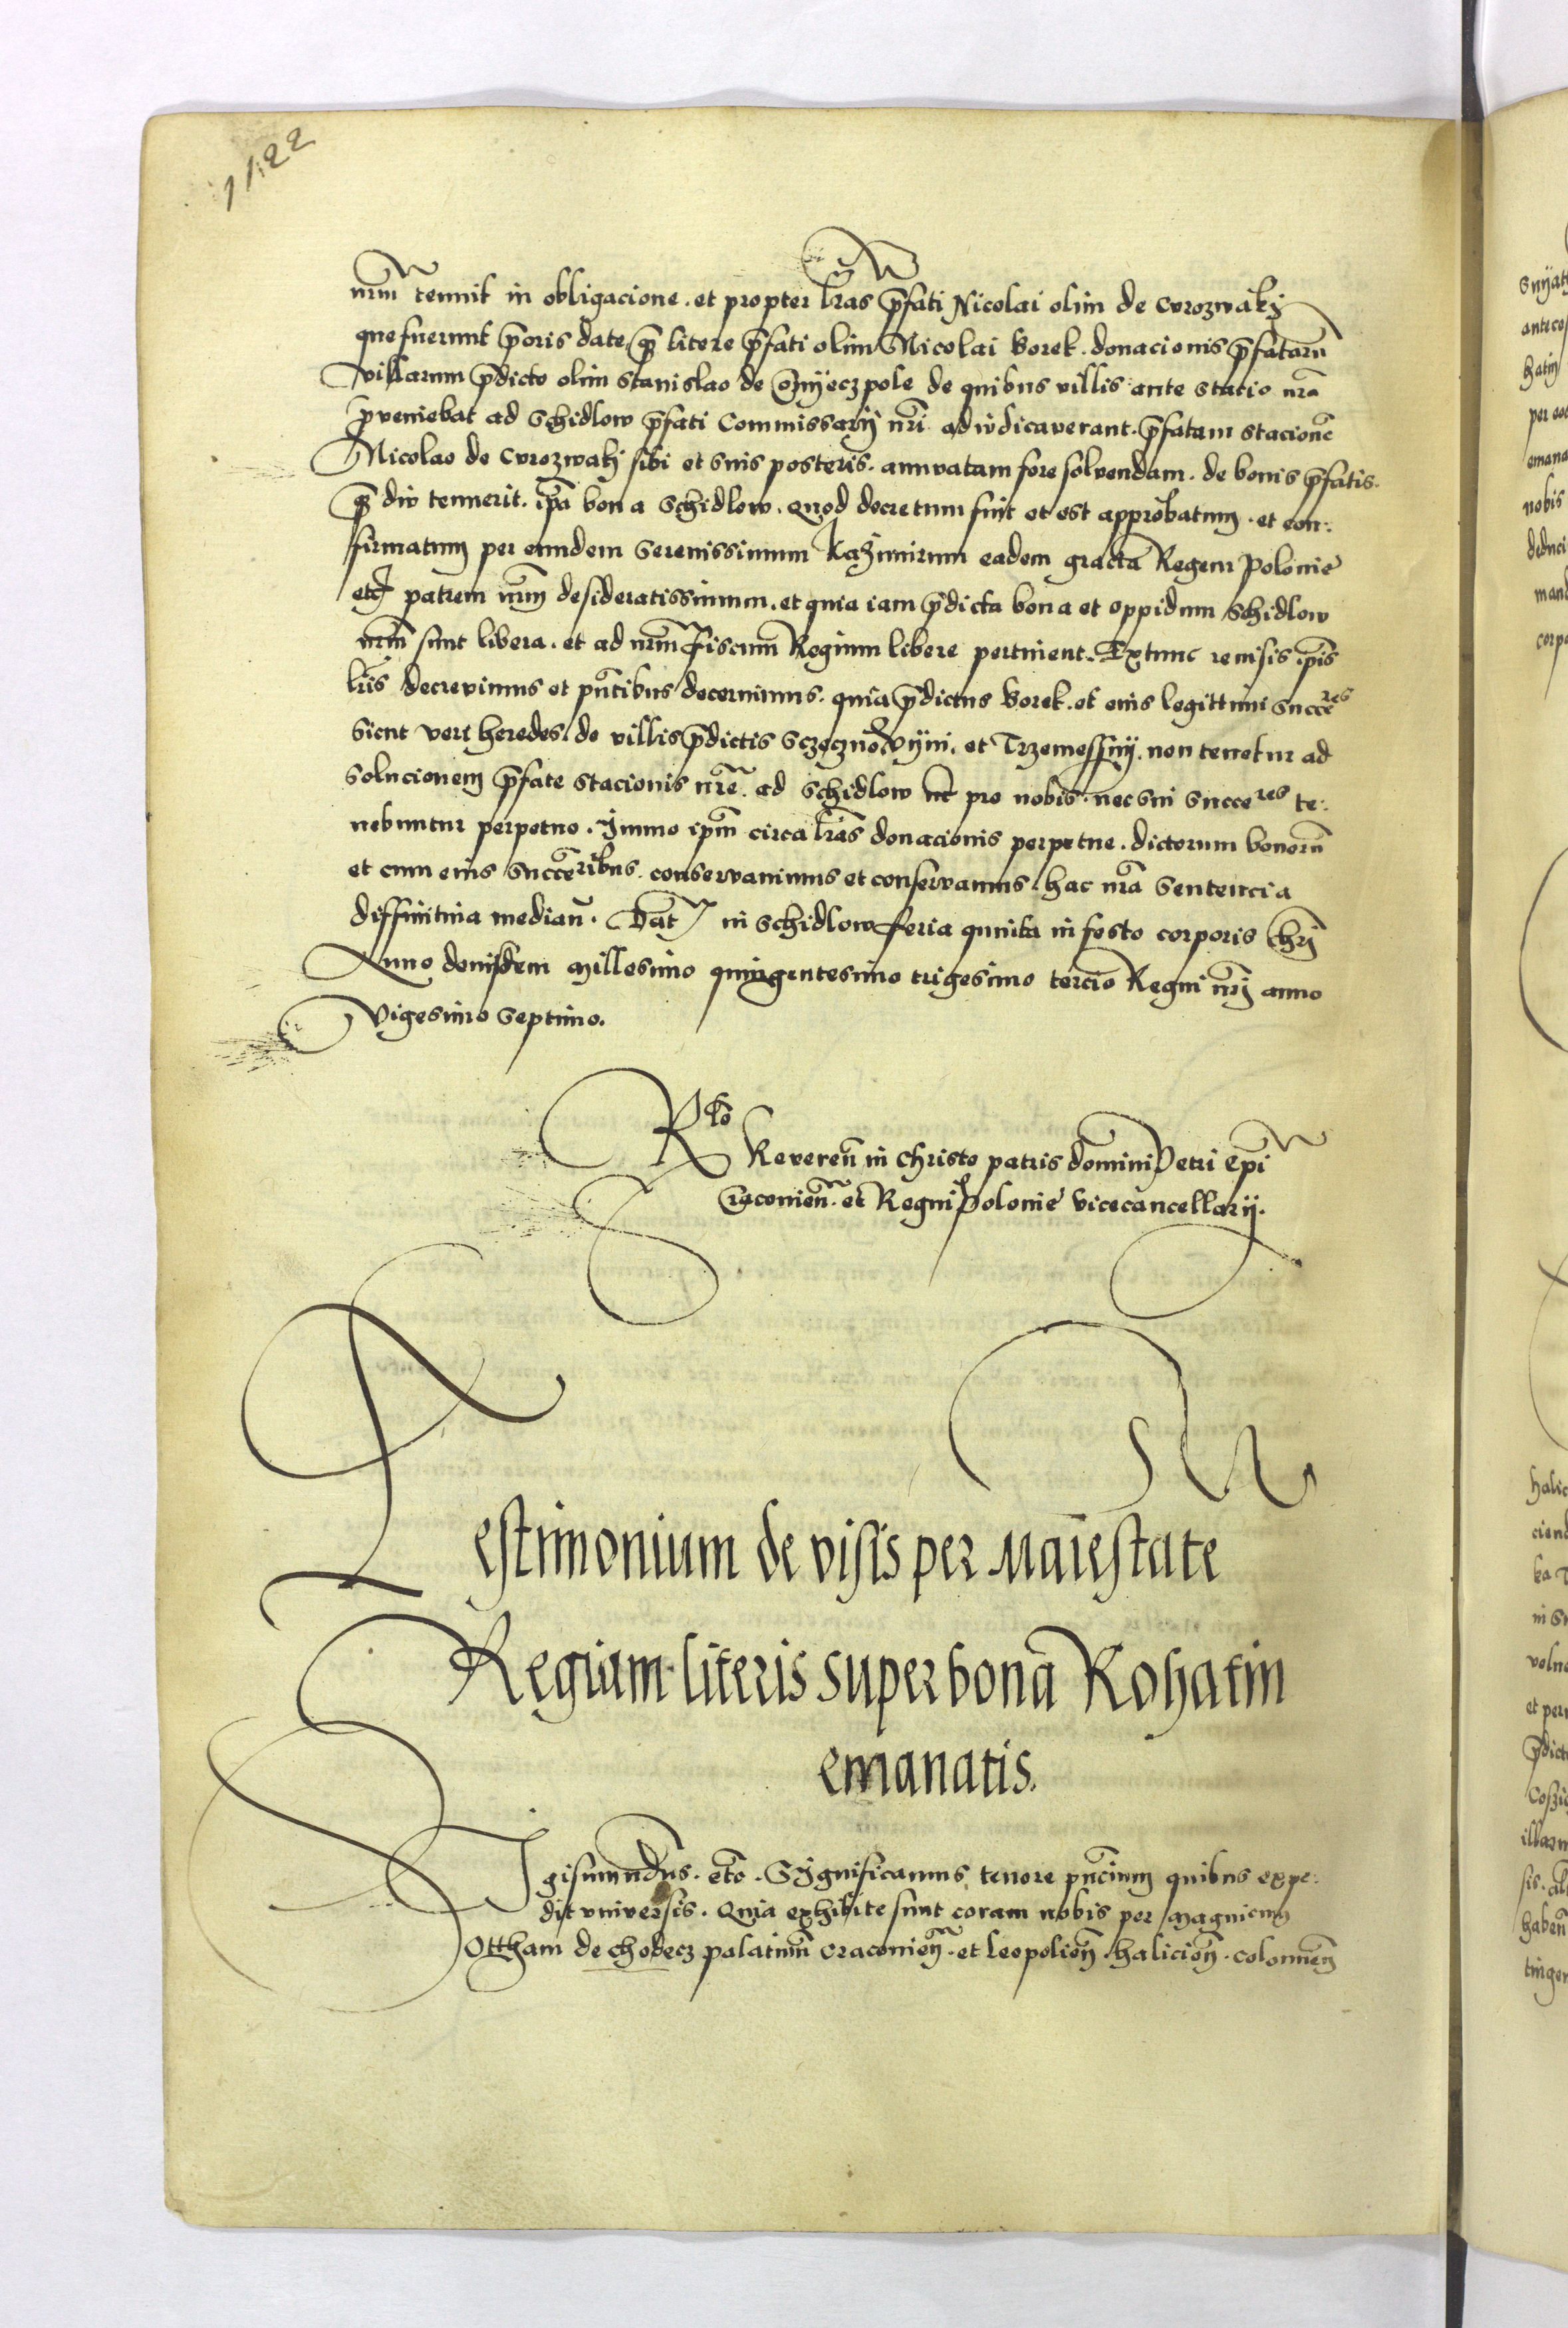 1122
nrm tenuit in obligacione. et propter lras pfati Nicolai olim de Curozwaky
que fuerunt poris date, q litere pfati olim Nicolai Borek. donacionis pfataru
villarum pdicto olim Stanislao de Conyeczpole de quibus villis ante statio nra
pveniebat ad Schidlow pfati Commissarij nri adiudicaverant. pfatam stacione
Nicolao de Curozwaky sibi et suis posteris. annuatam fore solvendam. de bonis pfatis.
q diu tenuerit. ipa bona Schidlow. quod decretum fuit et est approbatum. et con:
firmatum per eundem Serenissimum Kazimirum eadem gracia Regem Polonie
etc patrem nrum desideratissimum. et quia iam pdicta bona et oppidum Schidlow
nrm sunt libera. et ad nrum Fiscum Regium libere pertinent. Extunc revisis ipis
lris decrevimus et pntibus decernimus. quia pdictus Borek. et eius legittimi succe res
sicut veri heredes. de villis pdictis Sczeczno Vyni. et Trzemessny. non tenetur ad
solucionem pfate stacionis nre. ad Schidlow nec pro nobis. nec sui succe res te:
nebuntur perpetuo. Immo ipm circa lras donacionis perpetue. dictorum bonoru
et cum eius succeribus. conservavimus et conservamus. hac nra sentencia
diffinitiva median. Dat in Schidlow feria quinta in festo corporis Chri
Anno domi[...] millesimo quingentesimo trigesimo tercio Regni nri anno
Vigesimo septimo.
Rlo
Reveren in Christo patris domini Petri Epi
Craconien. et Regni Polonie vicecancellarij.
Testimonium de visis per Maiestate
Regiam literis super bona Rohatin
emanatis.
Sigismundus. etc. Significamus tenore pncium quibus expe:
dit universis. Quia exhibite sunt coram nobis per magnicum
Ottham de Chodecz palatinum Craconien. et Leopolien. Halicien. Colomien